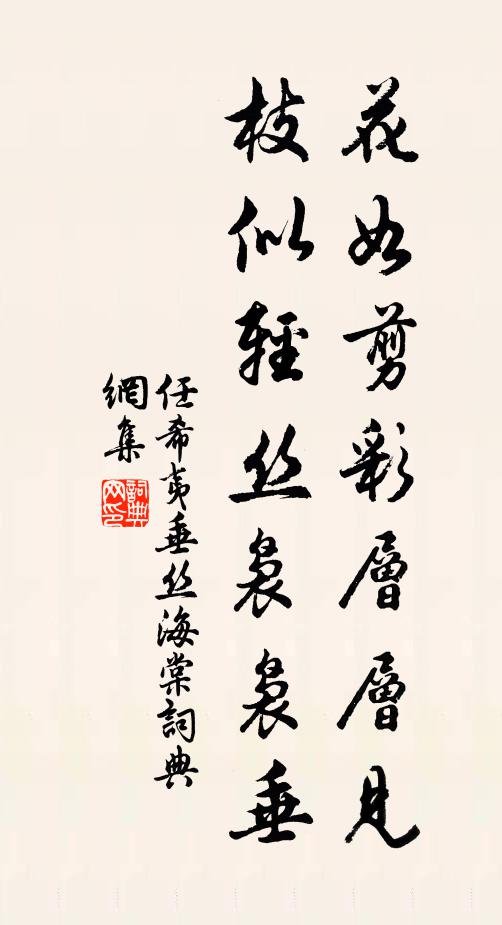 花如剪彩層層見
枝似輕丝袅袅垂
任希夷垂丝海棠詞典
網集
詞典
网印